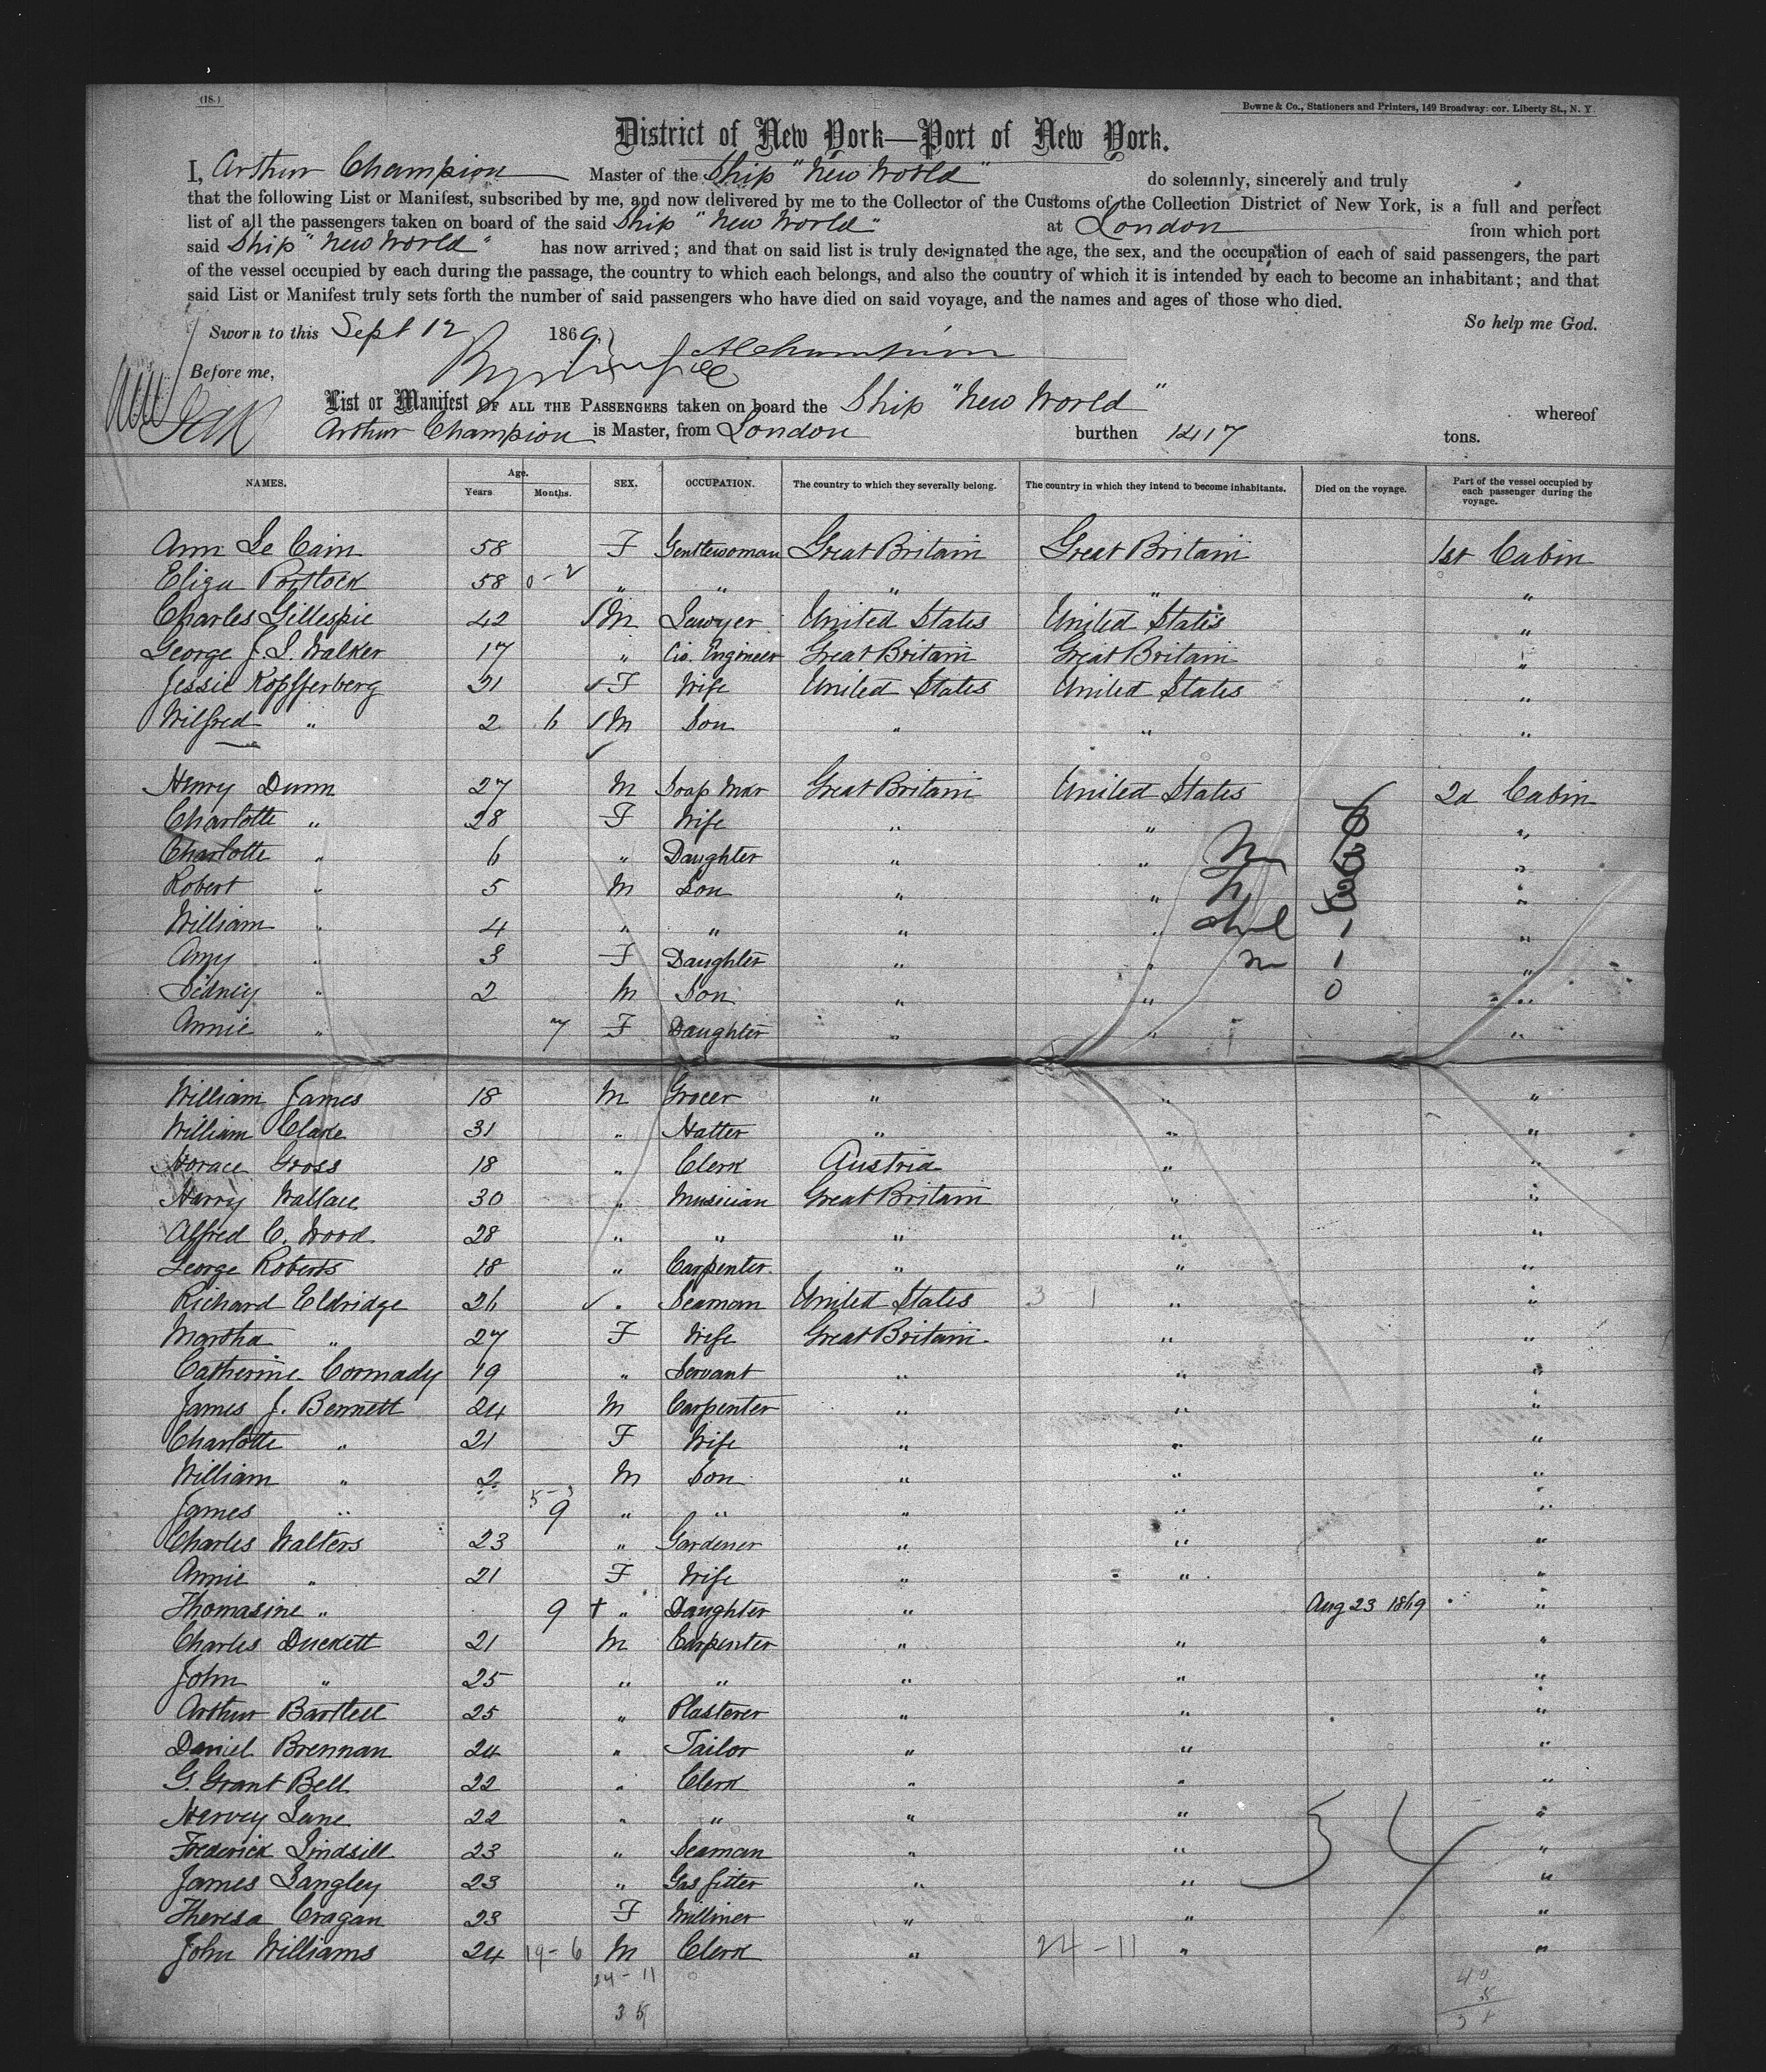 (18.)
Bowne & Co., Stationers and Printers, 149 Broadway: cor. Liberty St., N. Y
District of New York—Port of New York.
I, Arthur Champion Master of the Ship "New World" do solemnly, sincerely and truly
that the following List or Manifest, subscribed by me, and now delivered by me to the Collector of the Customs of the Collection District of New York, is a full and perfect
list of all the passengers taken on board of the said Ship "New World" at London from which port
said Ship "New World" has now arrived; and that on said list is truly designated the age, the sex, and the occupation of each of said passengers, the part
of the vessel occupied by each during the passage, the country to which each belongs, and also the country of which it is intended by each to become an inhabitant; and that
said List or Manifest truly sets forth the number of said passengers who have died on said voyage, and the names and ages of those who died.
So help me God.
Sworn to this Sept 12 1869. AChampion
Before me,
List or Manifest OF ALL THE PASSENGERS taken on board the Ship "New World" whereof
Arthur Champion is Master, from London burthen 1417 tons.
NAMES. Age. Years Months. SEX. OCCUPATION. The country to which they severally belong. The country in which they intend to become inhabitants. Died on the voyage. Part of the vessel occupied by each passenger during the voyage.
Ann Le Cain 58 F Gentlewoman Great Britain Great Britain 1st Cabin
Eliza Portlock 58 0-2 " " " " "
Charles Gillespie 42 M Lawyer United States United States "
George J. S. Walker 17 " Civ. Engineer Great Britain Great Britain "
Jessie Kopfferberg 21 F Wife United States United States "
Wilfred " 2 6 M Son " " "
Henry Dunn 27 M Soap Mkr Great Britain United States 2d Cabin
Charlotte " 28 F Wife " " "
Charlotte " 6 " Daughter " " "
Robert " 5 M Son " " "
William " 4 " " " " 1 "
Amy " 3 F Daughter " " 1 "
Sidney " 2 M Son " " 0 "
Annie " 7 F Daughter " " "
William James 18 M Grocer " " "
William Clake 31 " Hatter " " "
Horace Gross 18 " Clerk Austria " "
Harry Wallace 30 " Musician Great Britain " "
Alfred C. Wood 28 " " " " "
George Roberts 18 " Carpenter " " "
Richard Eldridge 26 " Seaman United States 3 1 " "
Martha " 27 F Wife Great Britain " "
Catherine Cormady 19 " Servant " " "
James J. Bennett 24 M Carpenter " " "
Charlotte " 21 F Wife " " "
William " 2 M Son " " "
James " 5-3 9 " " " " "
Charles Walters 23 " Gardener " " "
Annie " 21 F Wife " " "
Thomasine " 9 + " Daughter " Aug 23 1869 "
Charles Duckett 21 M Carpenter " " "
John " 25 " " " " "
Arthur Bartlett 25 " Plasterer " " "
Daniel Brennan 24 " Tailor " " "
G. Grant Bell 22 " Clerk " " "
Hervey Lane 22 " " " " "
Frederick Lindsill 23 " Seaman " " "
James Langley 23 " Gas fitter " " "
Theresa Cragan 23 F Milliner " " "
John Williams 24 19-6 M Clerk " 24-11 " "
24-11
35